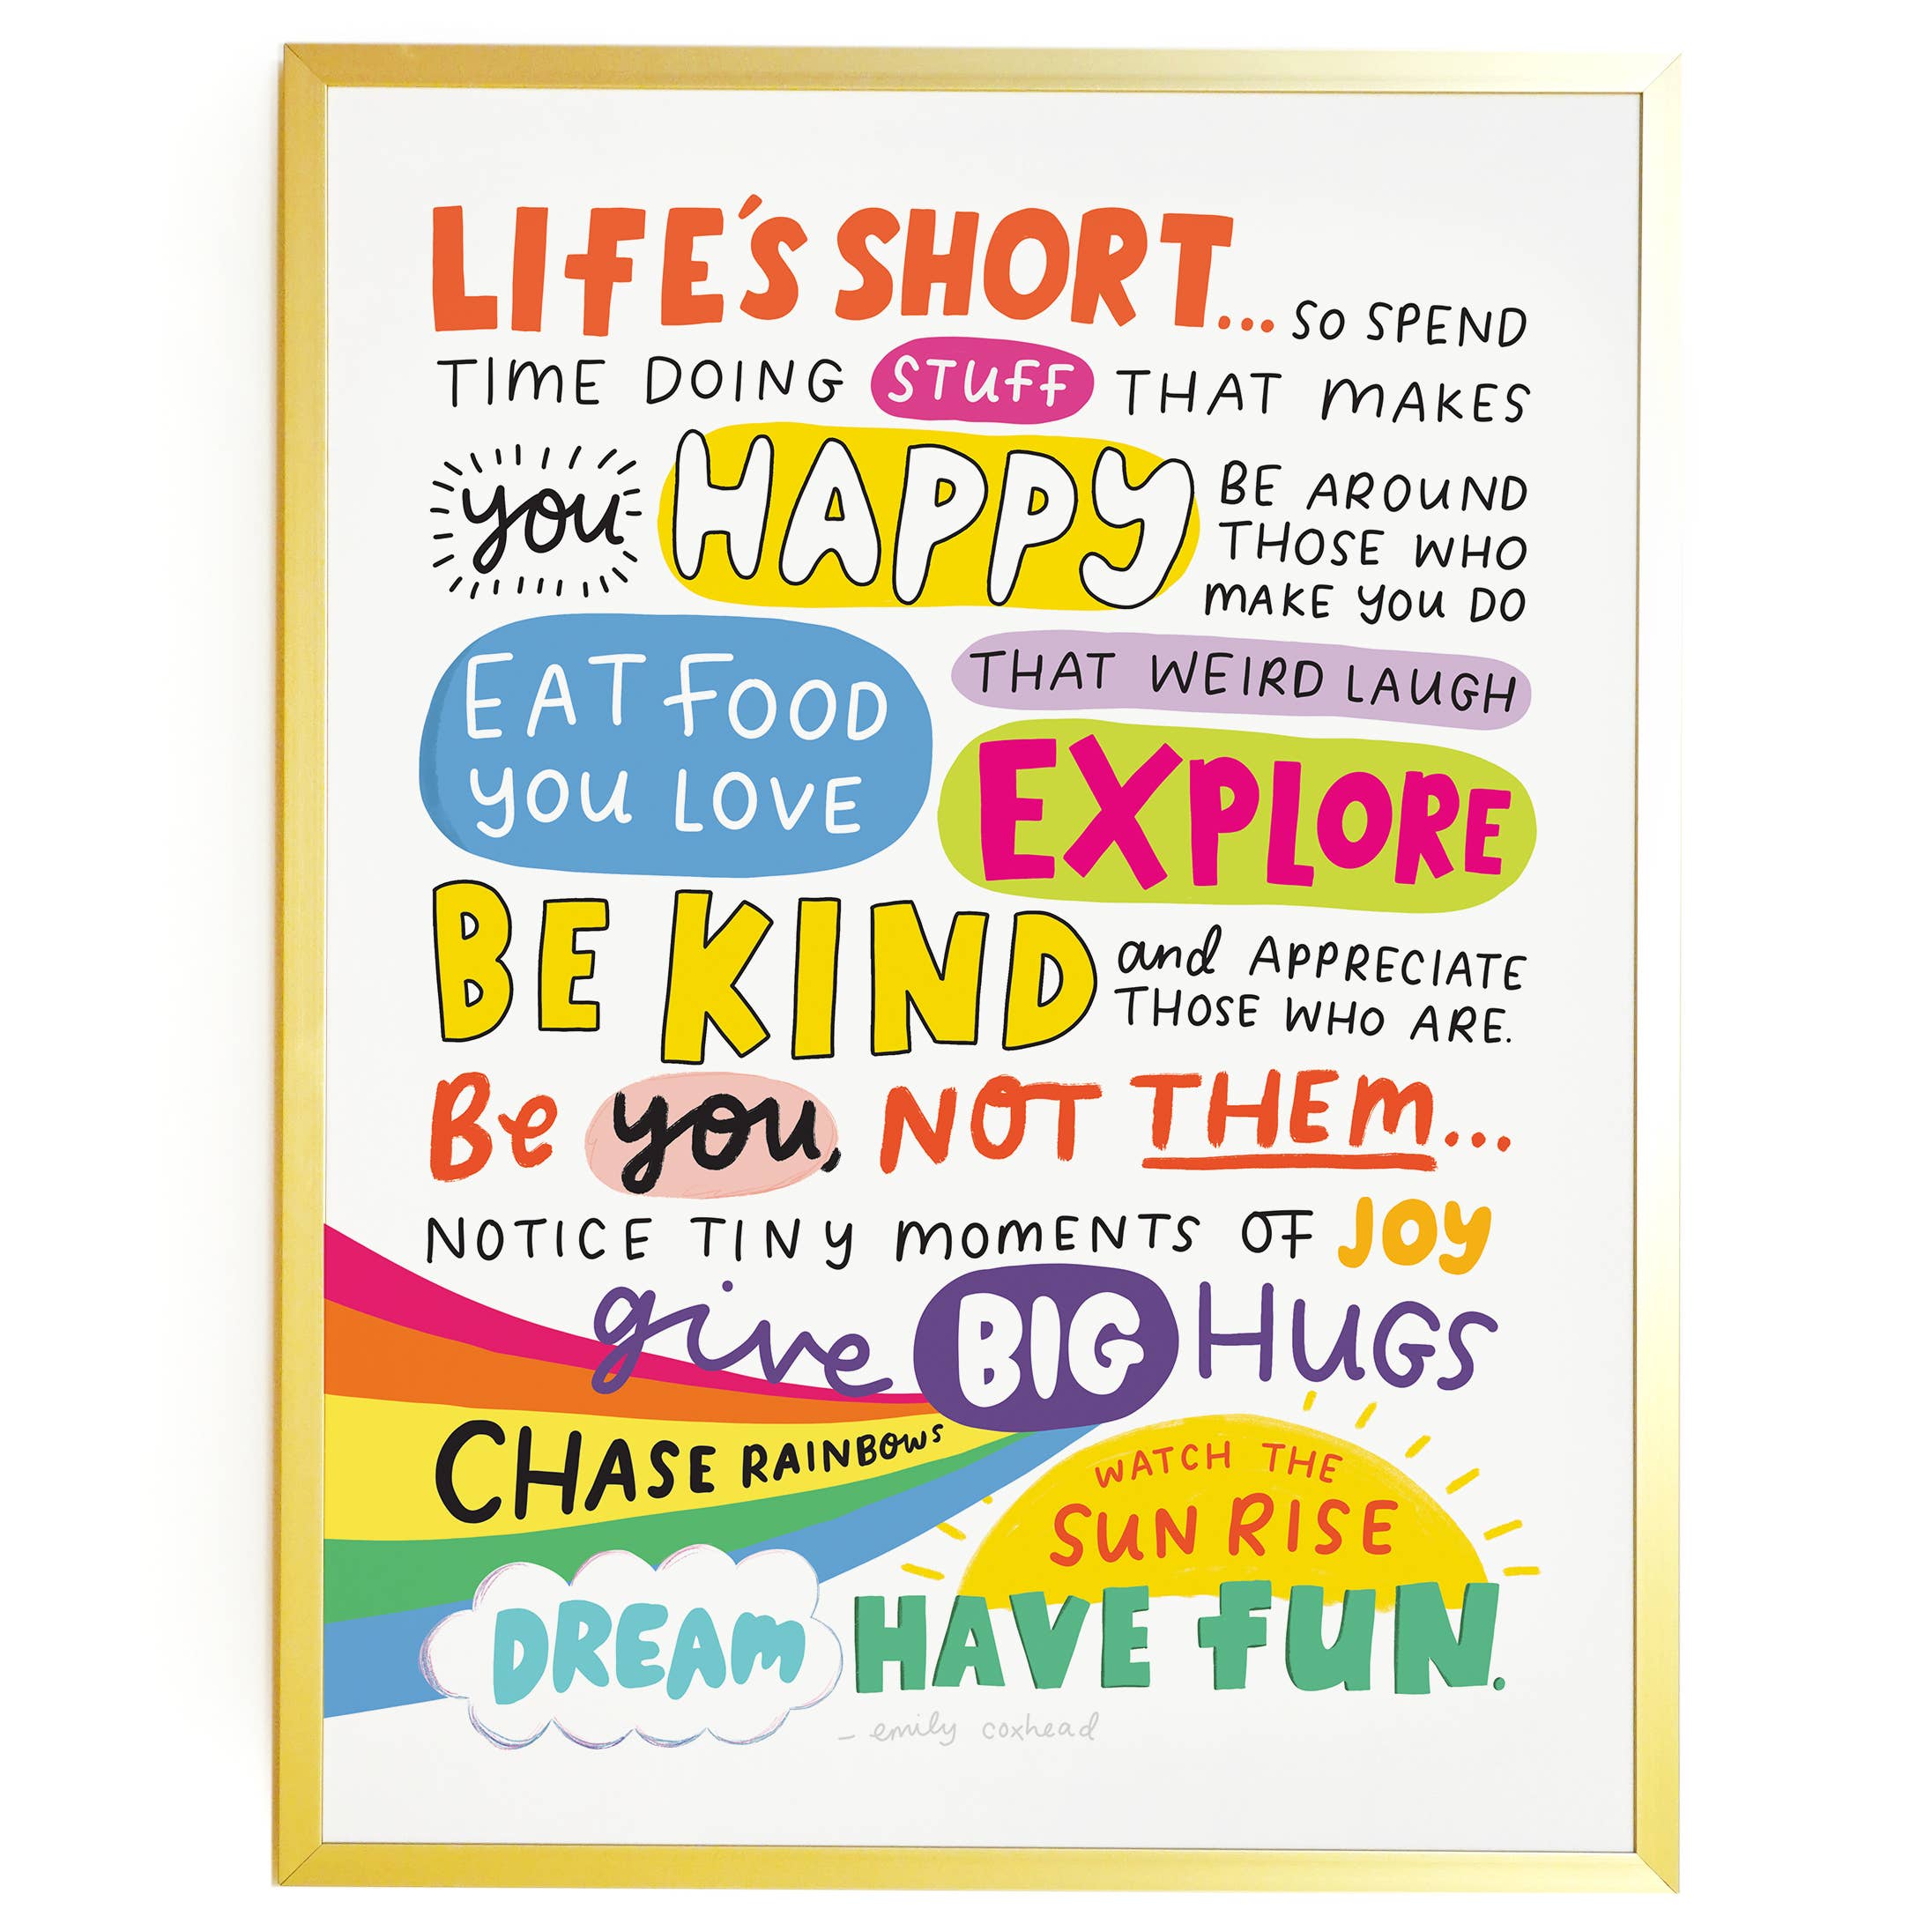 LIFE'S SHORT... SO SPEND
TIME DOING STUFF THAT MAKES
you HAPPY
BE AROUND
THOSE WHO
MAKE YOU DO
THAT WEIRD LAUGH
EAT FOOD
YOU LOVE
EXPLORE
BE KIND
and APPRECIATE
THOSE WHO ARE.
Be you, NOT THEM...
NOTICE TINY MOMENTS OF JOY
give BIG HUGS
CHASE RAINBOWS
WATCH THE
SUN RISE
DREAM HAVE FUN.
– emily coxhead